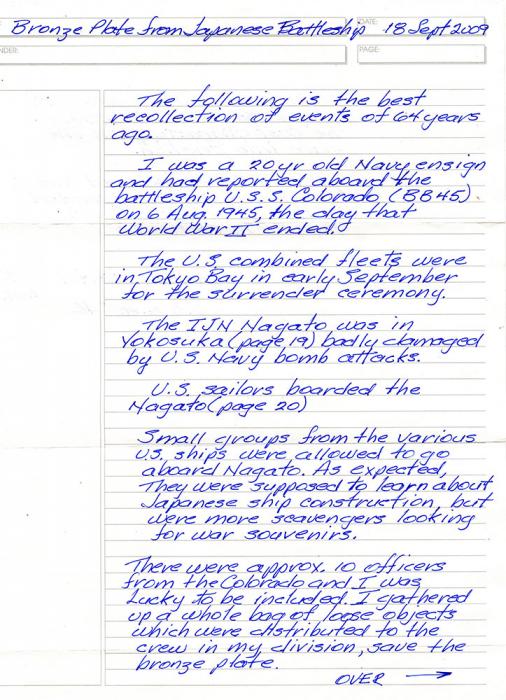 Bronze Plate from Japanese Battleship 18 Sept 2009
DATE:
NDER:
PAGE:
The following is the best
recollection of events of 64 years
ago.
I was a 20 yr old Navy ensign
and had reported aboard the
battleship U.S.S. Colorado (BB45)
on 6 Aug. 1945, the day that
World War II ended.
The U.S. combined fleets were
in Tokyo Bay in early September
for the surrender ceremony.
The IJN Nagato was in
Yokosuka (page 19) badly damaged
by U.S. Navy bomb attacks.
U.S. sailors boarded the
Nagato (page 20)
Small groups from the various
U.S. ships were allowed to go
aboard Nagato. As expected,
They were supposed to learn about
Japanese ship construction, but
were more scavengers looking
for war souvenirs.
There were approx. 10 officers
from the Colorado and I was
Lucky to be included. I gathered
up a whole bag of loose objects
which were distributed to the
crew in my division, save the
bronze plate.
OVER →